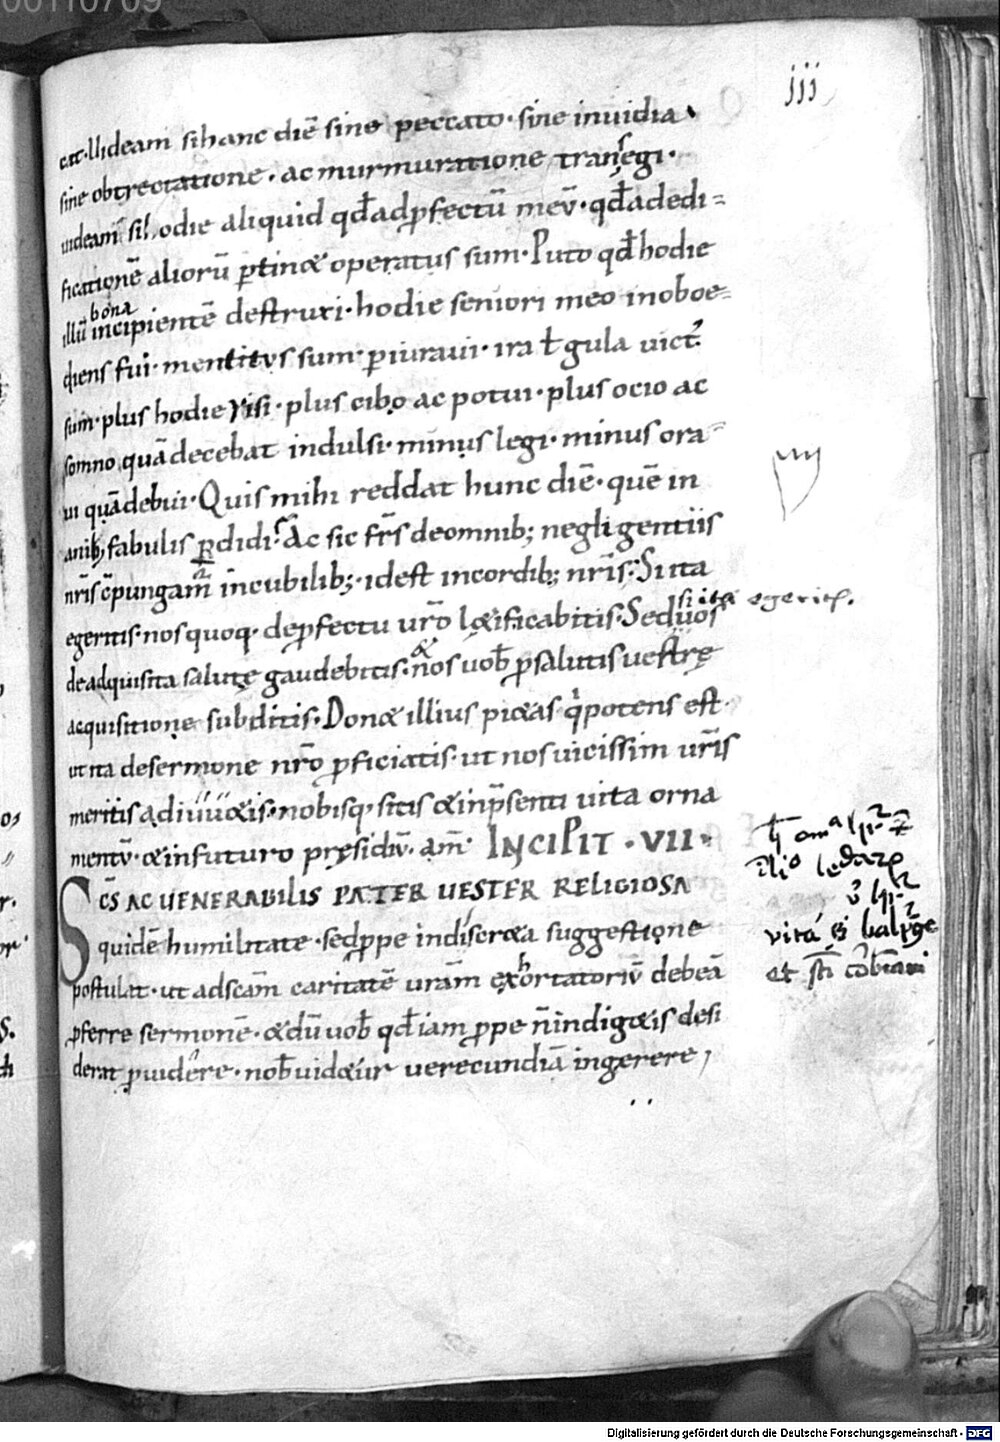 iii
etc. Uideam si hanc diē sine peccato · sine inuidia ·
sine obtrectatione · ac murmuratione transegi ·
uideam si hodie aliquid qđ ad ꝓfectū meū · qđ ad edi-
ficationē aliorū ꝑtin& operatus sum · Puto qđ hodie
bona
illū incipientē destruxi · hodie seniori meo inoboe-
diens fui · mentitus sum · ꝑiuraui · ira ł gula uict᾿
sum · plus hodie risi · plus cibo ac potui · plus ocio ac
somno quā decebat indulsi · minus legi · minus ora-
ui quā debui · Quis mihi reddat hunc diē · quē in
uanib; fabulis ꝑdidi · Ac sic fr̄s de omnib; negligentiis
nr̄is cōpungam᾿ in cubilib; · idest in cordib; nr̄is · Si ita
si ita egerit᾿
egeritis · nos quoq· de ꝓfectu ur̄o l&ificabitis · Sed uos
de adquisita salute gaudebitis · & nos uob̄ ꝓ salutis uestrę
acquisitione subditis · Don& illius pi&as qͥ potens est ·
ut ita de sermone nr̄o ꝓficiatis · ut nos uicissim ur̄is
meritis adiuu&is · nobisq· sitis & in p̄senti uita orna
mentū · & in futuro pręsidiū · am̄ · INCIPIT · VII ·
SC̄S AC UENERABILIS PATER UESTER RELIGIOSA
quidē humilitate · sed ꝓpe indiscr&a suggestione
postulat · ut ad sc̄am caritatē ur̄am exhortatoriū debeā
ꝓferre sermonē · & dū uob̄ qđ iam ꝓpe n̄ indig&is desi
derat ꝓuidere · nob̄ uid&ur uerecundiā ingerere ;